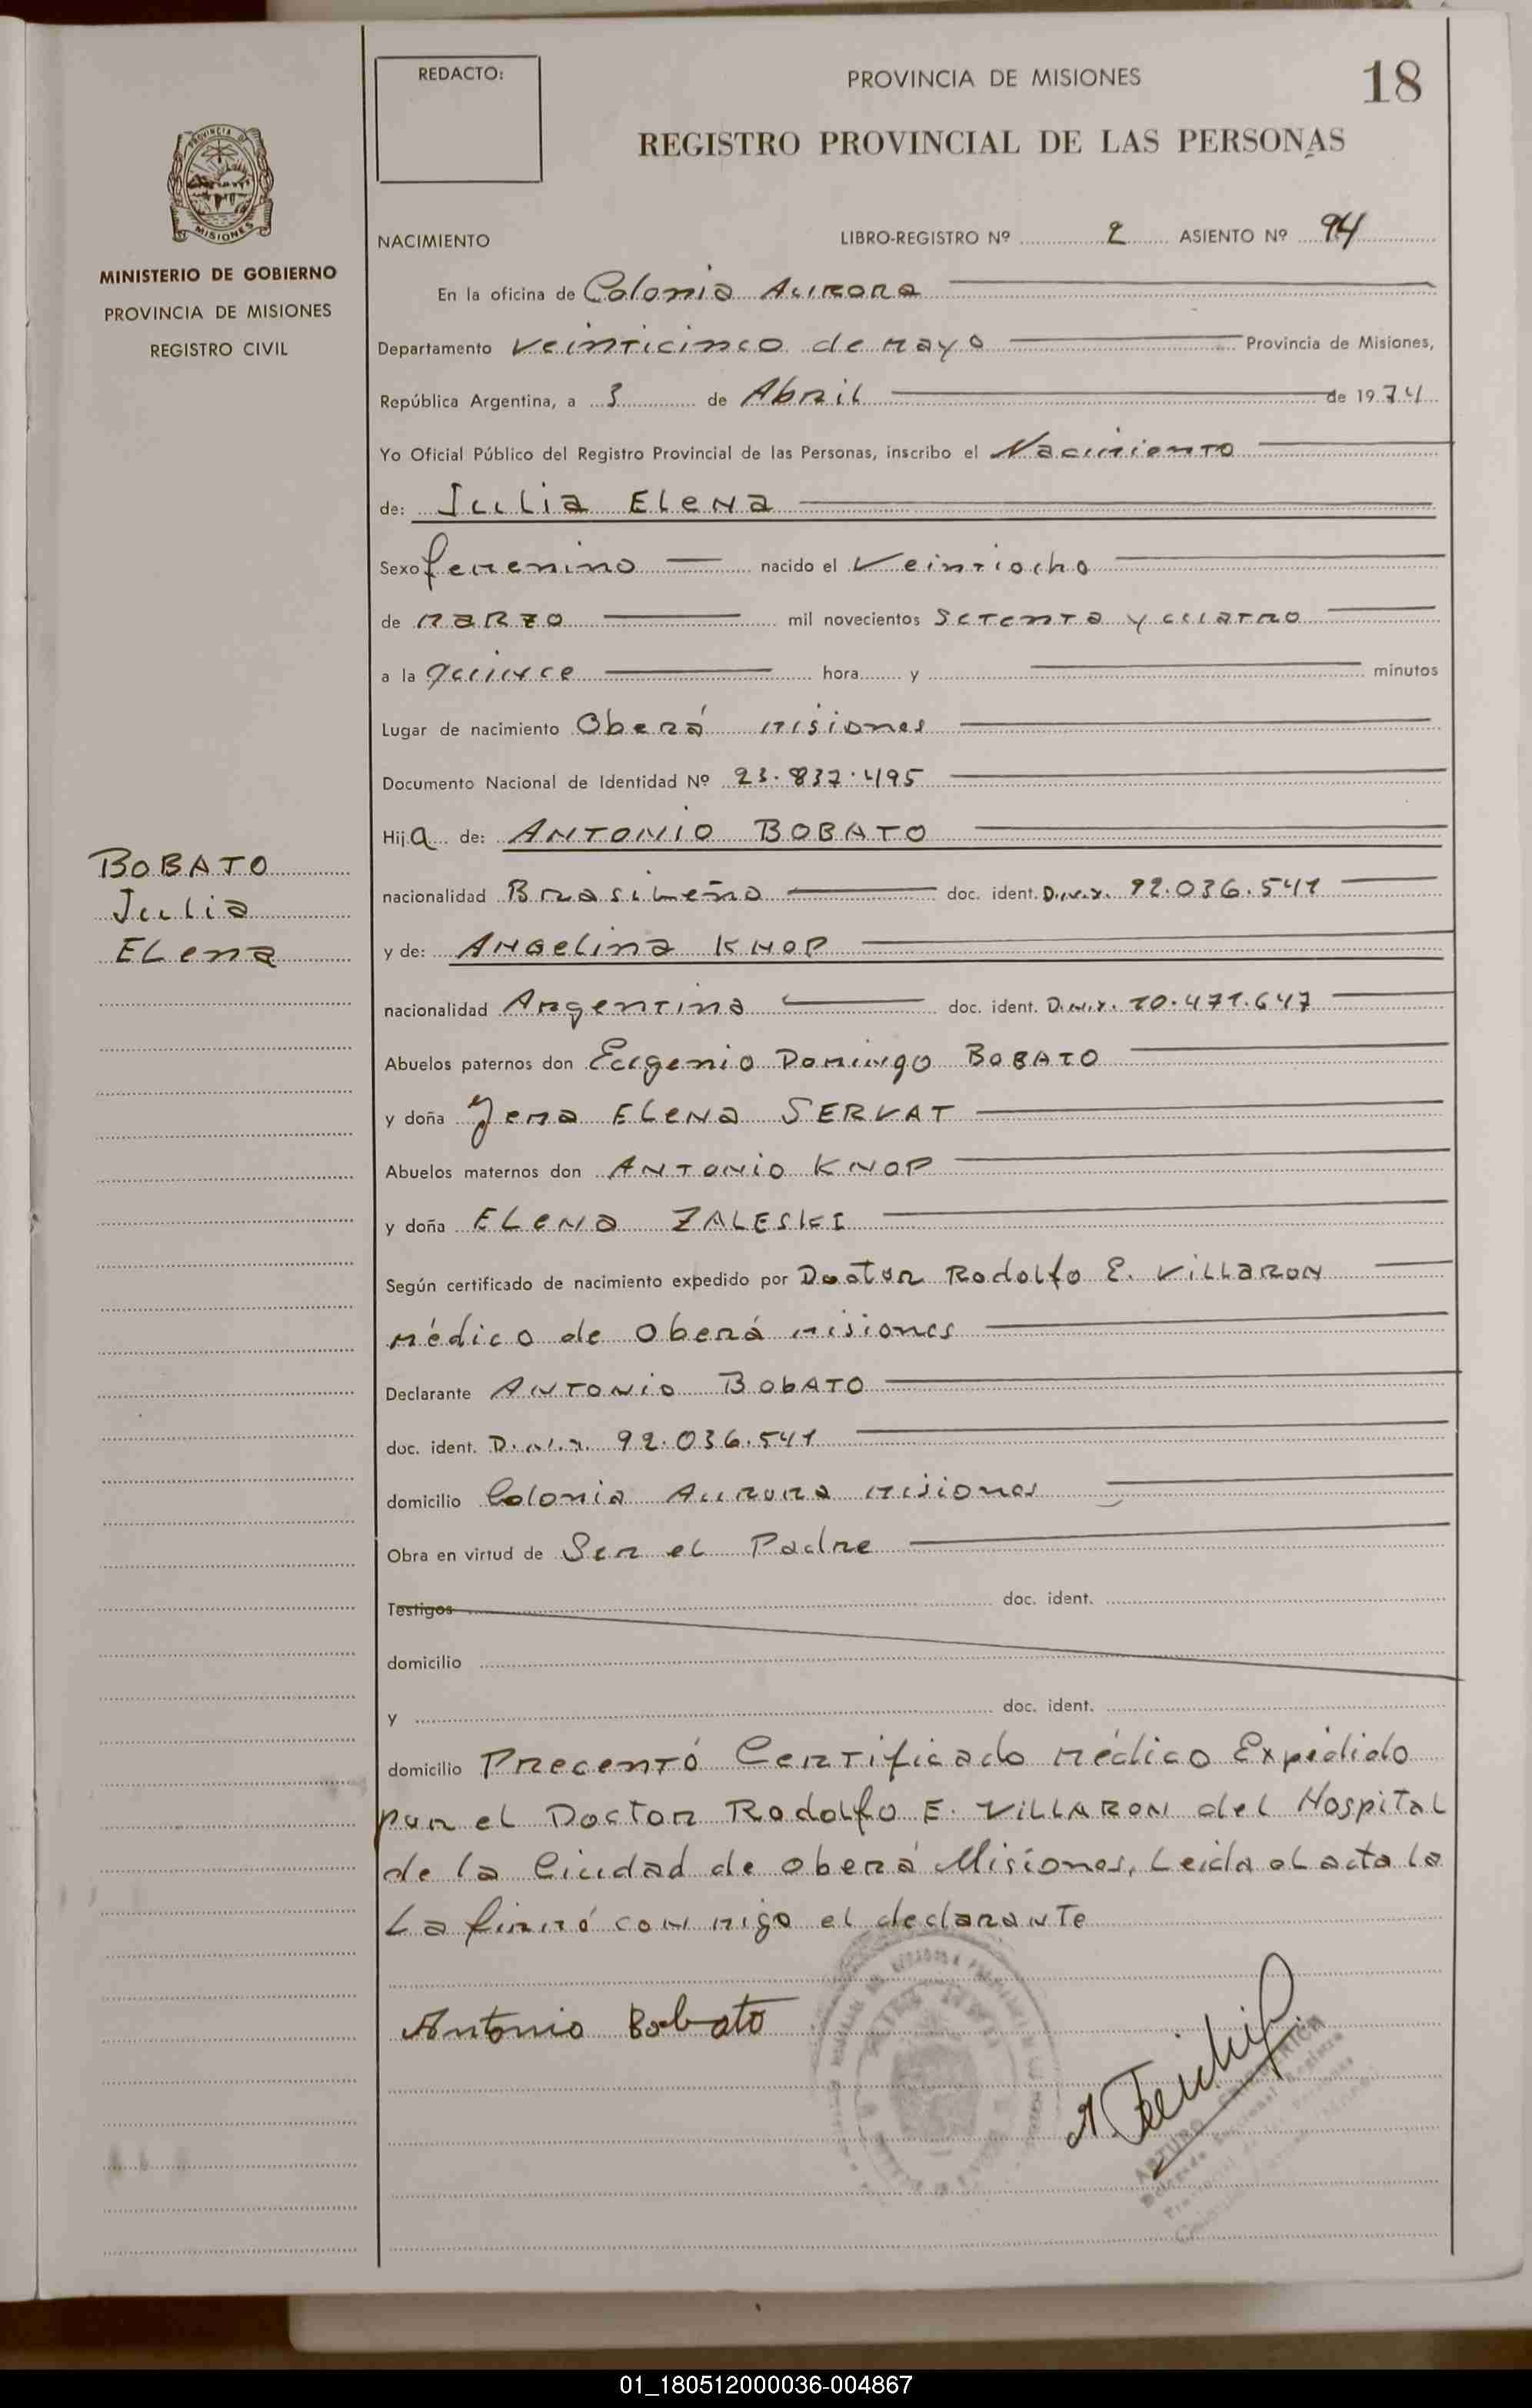 REDACTO:
PROVINCIA DE MISIONES
18
REGISTRO PROVINCIAL DE LAS PERSONAS
PROVINCIA DE
MISIONES
MINISTERIO DE GOBIERNO
PROVINCIA DE MISIONES
REGISTRO CIVIL
NACIMIENTO LIBRO-REGISTRO Nº 2 ASIENTO Nº 94
En la oficina de Colonia Aurora
Departamento veinticinco de mayo Provincia de Misiones,
República Argentina, a 3 de Abril de 1974
Yo Oficial Público del Registro Provincial de las Personas, inscribo el Nacimiento
de: Julia Elena
Sexo femenino nacido el Veintiocho
de marzo mil novecientos setenta y cuatro
a la quince hora y minutos
Lugar de nacimiento Oberá misiones
Documento Nacional de Identidad Nº 23.837.495
Hija de: ANTONIO BOBATO
nacionalidad Brasileño doc. ident. D.N.I. 92.036.541
y de: Angelina KNOP
nacionalidad Argentina doc. ident. D.N.I. 10.471.647
Abuelos paternos don Eugenio Domingo BOBATO
y doña Jema Elena SERVAT
Abuelos maternos don ANTONIO KNOP
y doña Elena ZALESKI
Según certificado de nacimiento expedido por Doctor Rodolfo E. VILLARON
médico de Oberá misiones
Declarante ANTONIO BObATO
doc. ident. D.N.I. 92.036.541
domicilio Colonia Aurora misiones
Obra en virtud de Ser el Padre
Testigos doc. ident.
domicilio
y doc. ident.
domicilio Precentó Certificado médico Expidido
por el Doctor Rodolfo E. VILLARON del Hospital
de la Ciudad de oberá Misiones, Leida el acta la
La firmó con migo el declarante
BOBATO
Julia
Elena
Antonio Bobato
ARTURO
01_180512000036-004867